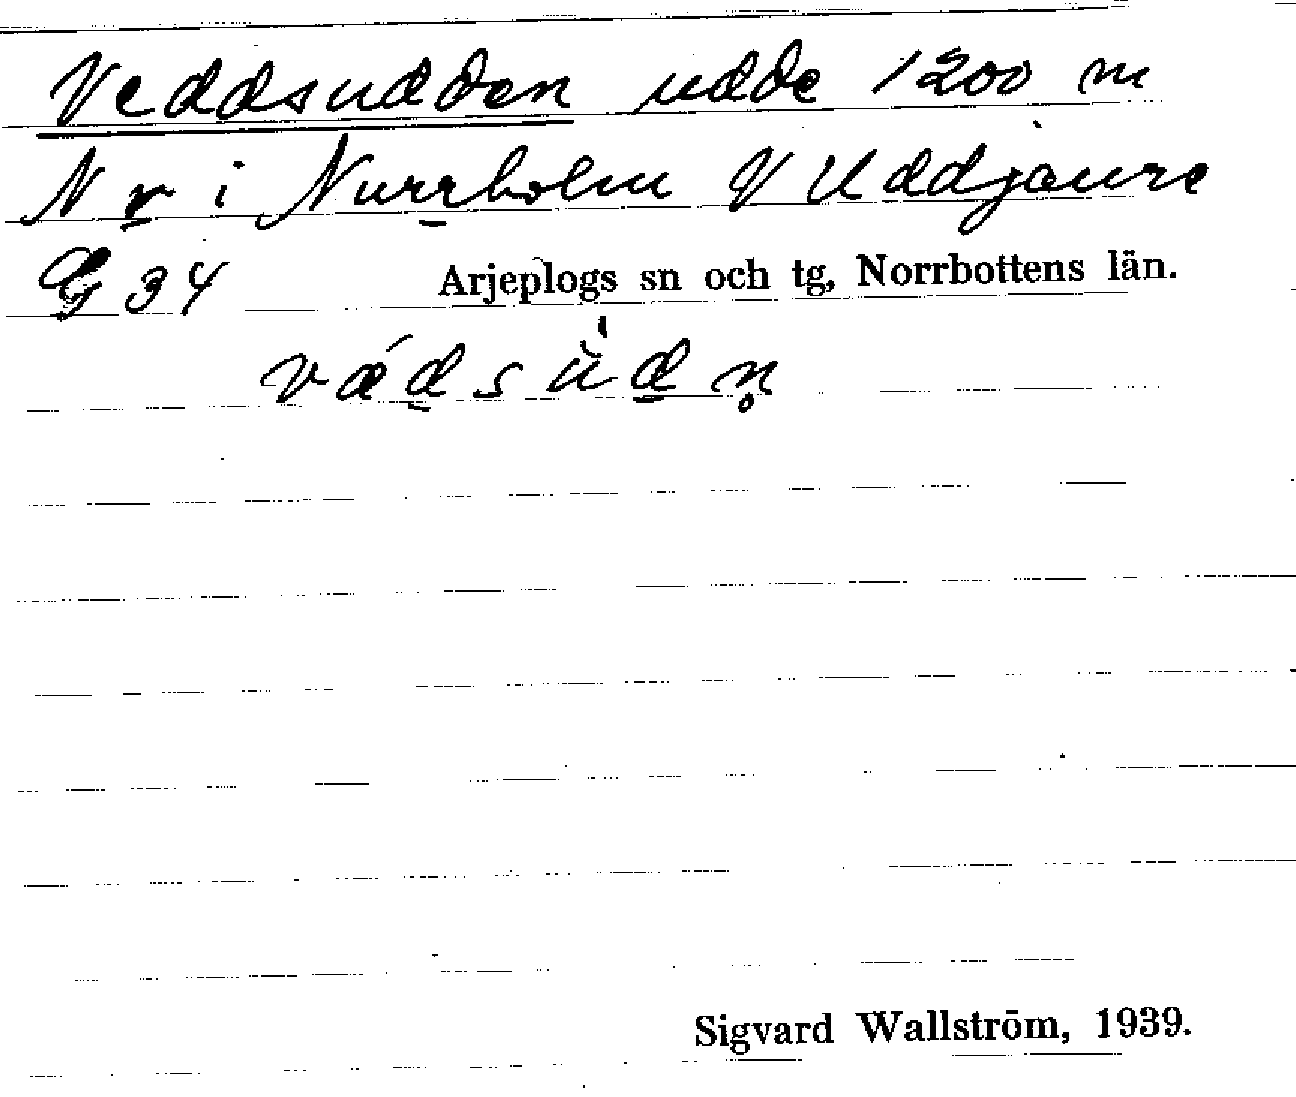 Veddsudden udde 1200 m
N r i Nurrholm V Uddjaure
G 34 Arjeplogs sn och tg, Norrbottens län.
vǽdsùdn̥
Sigvard Wallström, 1939.